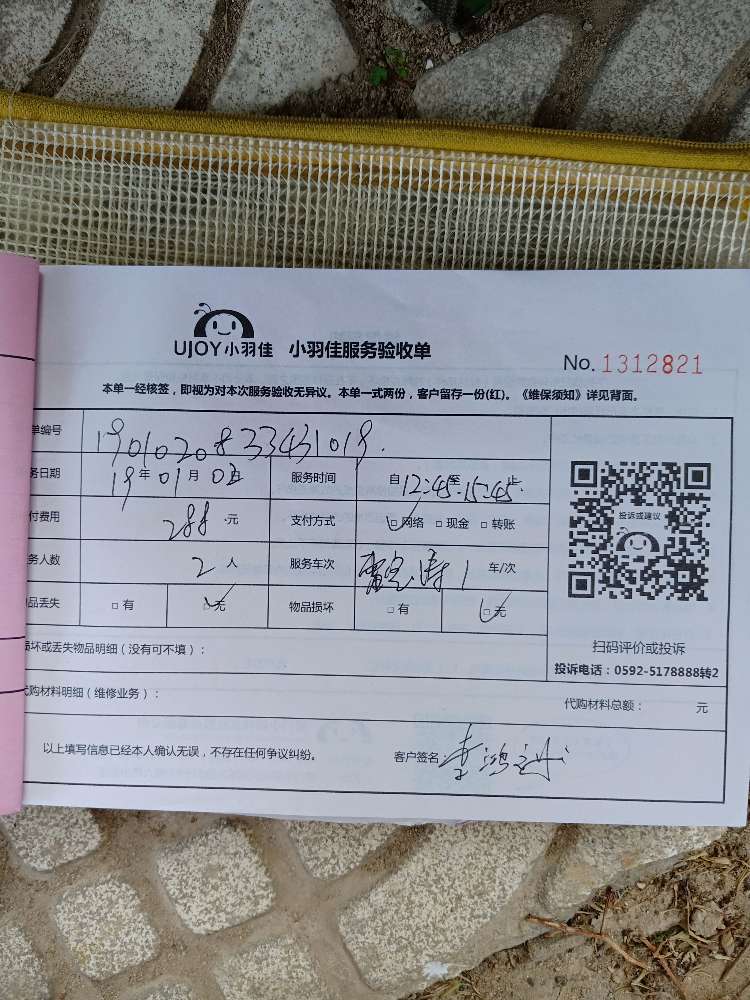 UJOY小羽佳 小羽佳服务验收单
No. 1312821
本单一经核签，即视为对本次服务验收无异议。本单一式两份，客户留存一份(红)。《维保须知》详见背面。
单编号 1901020833431019.
务日期 19年01月03日 服务时间 自12:45至15:45止.
付费用 288.元 支付方式 □网络 □现金 □转账
务人数 2人 服务车次 1 车/次
品丢失 □有 □无 物品损坏 □有 □无
投诉或建议
扫码评价或投诉
投诉电话：0592-5178888转2
损坏或丢失物品明细（没有可不填）：
代购材料明细（维修业务）： 代购材料总额： 元
以上填写信息已经本人确认无误，不存在任何争议纠纷。 客户签名：